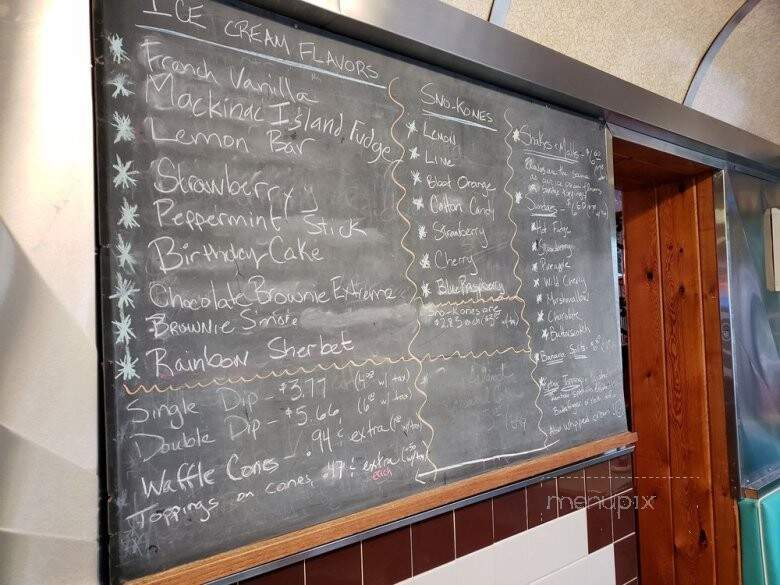 ICE CREAM FLAVORS
French Vanilla
Mackinac Island Fudge
Lemon Bar
Strawberry
Peppermint Stick
Birthday Cake
Chocolate Brownie Extreme
Brownie S'more
Rainbow Sherbet
Single Dip - $3.77 (4.00 w/ tax)
Double Dip - $5.66 (6.00 w/ tax)
Waffle Cones - .94¢ extra
Toppings on cones .47¢ extra
each
SNO-KONES
Lemon
Lime
Blood Orange
Cotton Candy
Strawberry
Cherry
Blue Raspberry
Sno-Kones are
$2.83 each
Shakes & Malts -
Sundaes -
Hot Fudge
Strawberry
Pineapple
Wild Cherry
Marshmallow
Chocolate
Butterscotch
Banana Split -
Also whipped cream
menupix